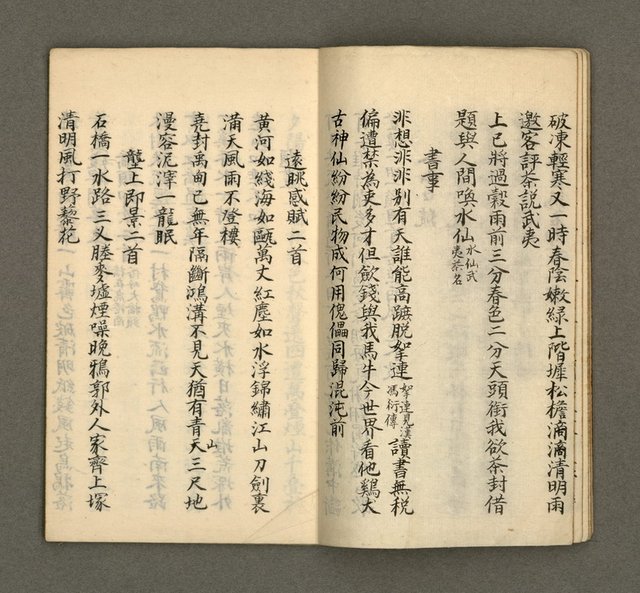 破凍輕寒又一時春陰嫩綠上階墀松檐滴滴清明雨
邀客評茶說武夷
上巳將過穀雨前三分春色二分天頭銜我欲茶封借
題與人間喚水仙水仙武夷茶名
書事
非想非非別有天誰能高蹠脫拏連拏連見漢馮衍傳讀書無稅
偏遭禁為吏多才但斂錢與我馬牛今世界看他鷄犬
古神仙紛紛民物成何用傀儡同歸混沌前
遠眺感賦二首
黃河如綫海如甌萬丈紅塵如水浮錦繡江山刀劍裏
滿天風雨不登樓
堯封禹甸已無年隔斷鴻溝不見天猶有青天三尺地
山
漫容泥滓一龍眠
壟上即景二首
石橋一水路三叉塍麥墟煙噪晚鴉郭外人家齊上塚
清明風打野藜花